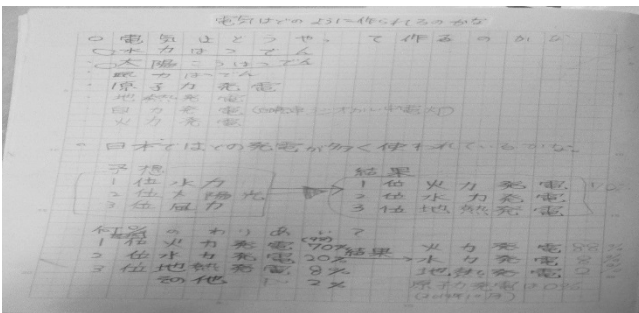 電気はどのように作られるのかな
○電気はどうやって作るのかな
○水力はつでん
○太陽こうはつでん
・風力はつでん
・原子力発電
・地熱発電
火力発電
○日本ではどの発電が多く使われているかな。
予想
1位水力
2位太陽光
3位風力
結果
1位火力発電
2位水力発電
3位地熱発電
何%のわりあい?
1位火力発電70%
2位水力発電20%
3位地熱発電8%
その他 2%
結果
火力発電88%
水力発電8%
地熱発電
原子力発電0%